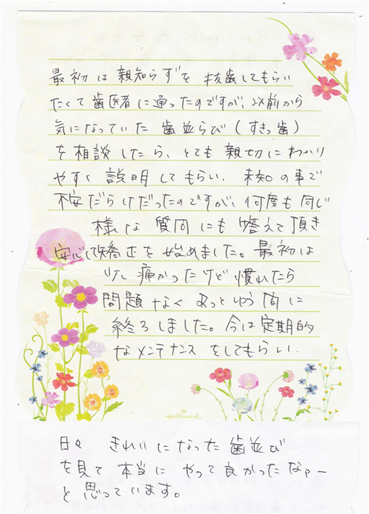 最初は親知らずを抜歯してもらい
たくて歯医者に通ったのですが、以前から
気になっていた歯並らび(すきっ歯)
を相談したら、とても親切にわかり
やすく説明してもらい、未知の事で
不安だらけだったのですが、何度も同じ
様な質問にも答えて頂き
安心して矯正を始めました。最初は
少し痛かったけど慣れたら
問題なくあっとゆう間に
終ろしました。今は定期的
なメンテナンスをしてもらい、
日々きれいになった歯並び
を見て本当にやって良かったなぁー
と思っています。